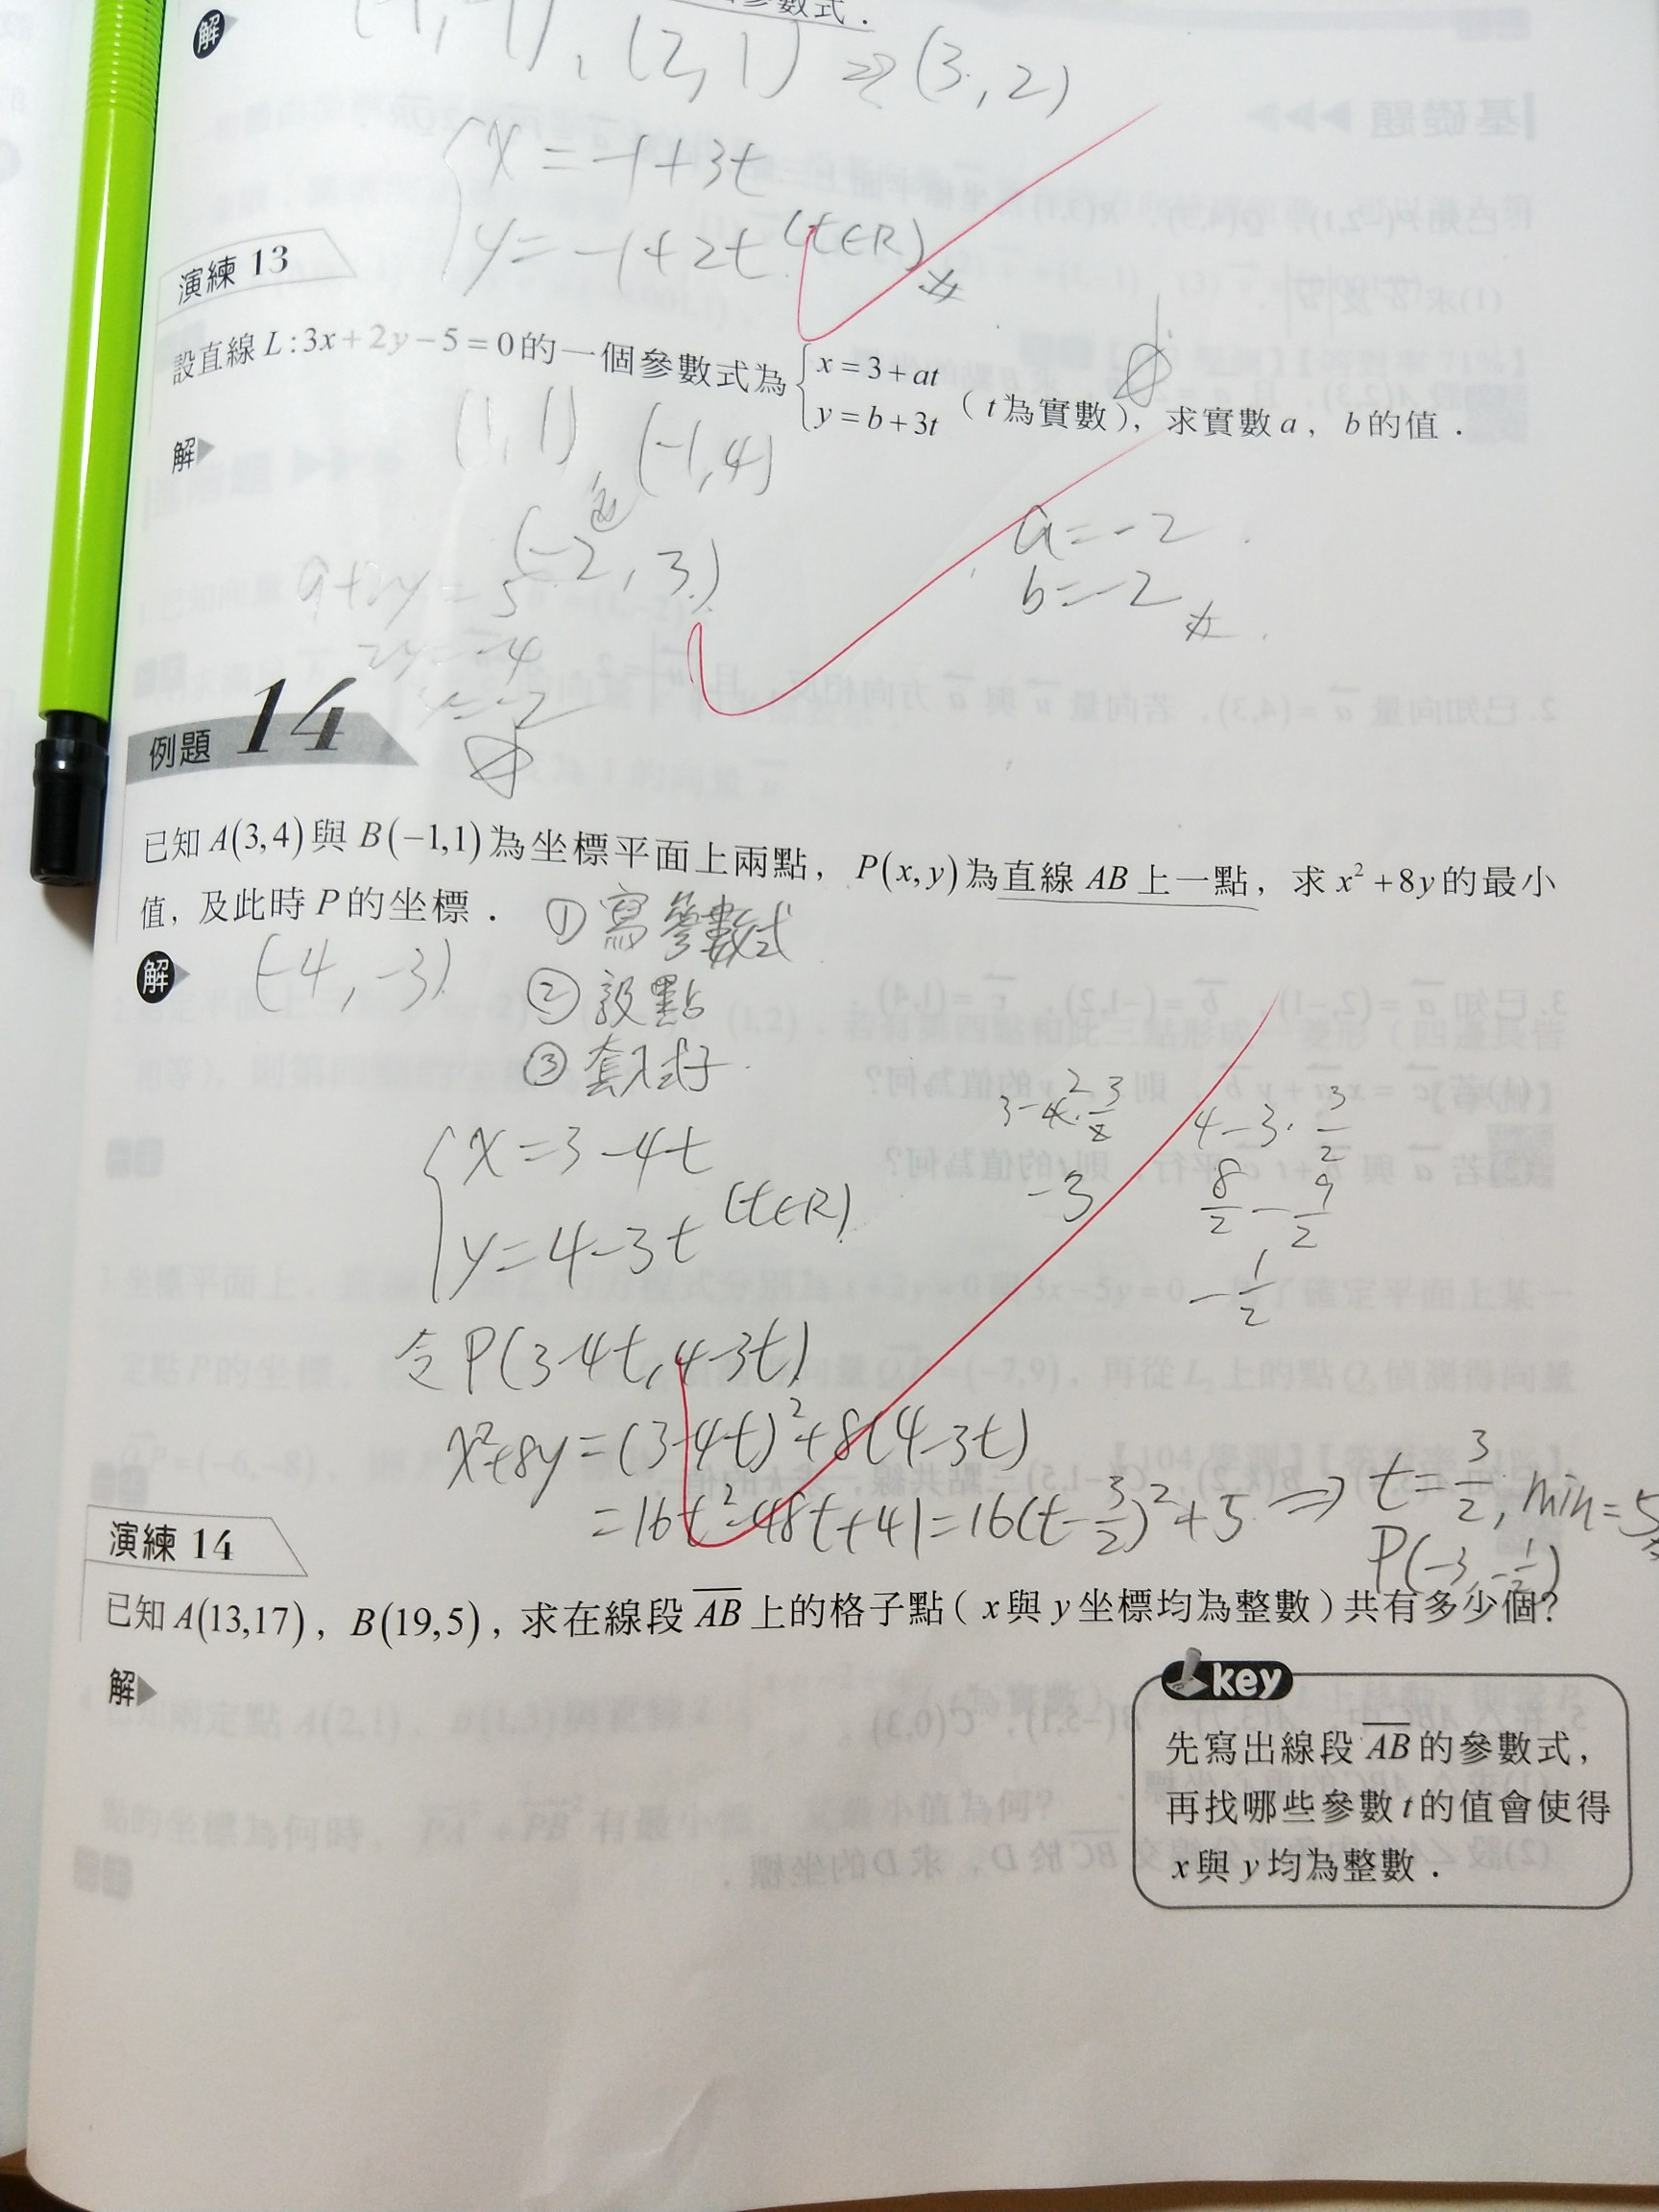 參數式．
解
, (2, 1) ⇒ (3, 2)
x = -1 + 3t
y = -1 + 2t (t∈R)
演練 13
設直線 L : 3x + 2y − 5 = 0 的一個參數式為 { x = 3 + at
y = b + 3t （ t 為實數），求實數 a ， b 的值．
解
(1, 1) , (-1, 4)
(-2, 3)
9+2y=5
2y=-4
y=-2
a=-2
b=-2
例題 14
已知 A(3,4) 與 B(−1,1) 為坐標平面上兩點， P(x,y) 為直線 AB 上一點，求 x² + 8y 的最小
值，及此時 P 的坐標．
① 寫參數式
解
(-4, -3)
② 設點
③ 套入式子
x = 3-4t
y = 4-3t (t∈R)
3-4·3/2
-3
4-3·3/2
8/2 - 9/2
-1/2
令 P(3-4t, 4-3t)
x²+8y = (3-4t)²+8(4-3t)
= 16t²-48t+41 = 16(t-3/2)²+5 ⇒ t=3/2, min=5
P(-3, -1/2)
演練 14
已知 A(13,17) ， B(19,5) ，求在線段 AB 上的格子點（ x 與 y 坐標均為整數）共有多少個？
解
key
先寫出線段 AB 的參數式，
再找哪些參數 t 的值會使得
x 與 y 均為整數．